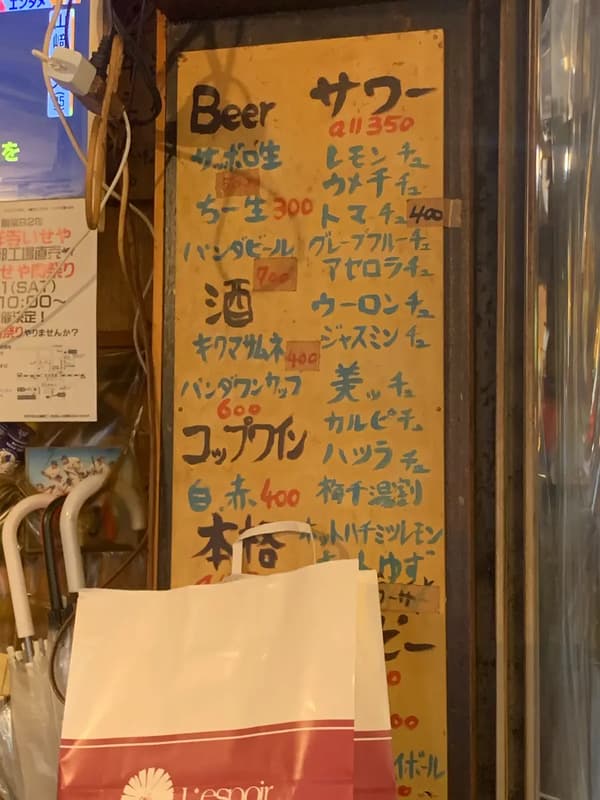 Beer
サッポロ生
ちー生 300
パンダビール
700
酒
キクマサムネ
400
パンダワンカップ
600
コップワイン
白、赤、400
本格
サワー
all 350
レモンチュ
ウメチチュ
トマチュ 400
グレープフルーチュ
アセロラチュ
ウーロンチュ
ジャスミンチュ
美ッチュ
カルピチュ
ハツラチュ
梅干湯割
ホットハチミツレモン
ゆず
ビー
イボール
L'espoir
エンタメ
を
いせや
工場直売
1(SAT)
10:00~
催決定!
りやりませんか?